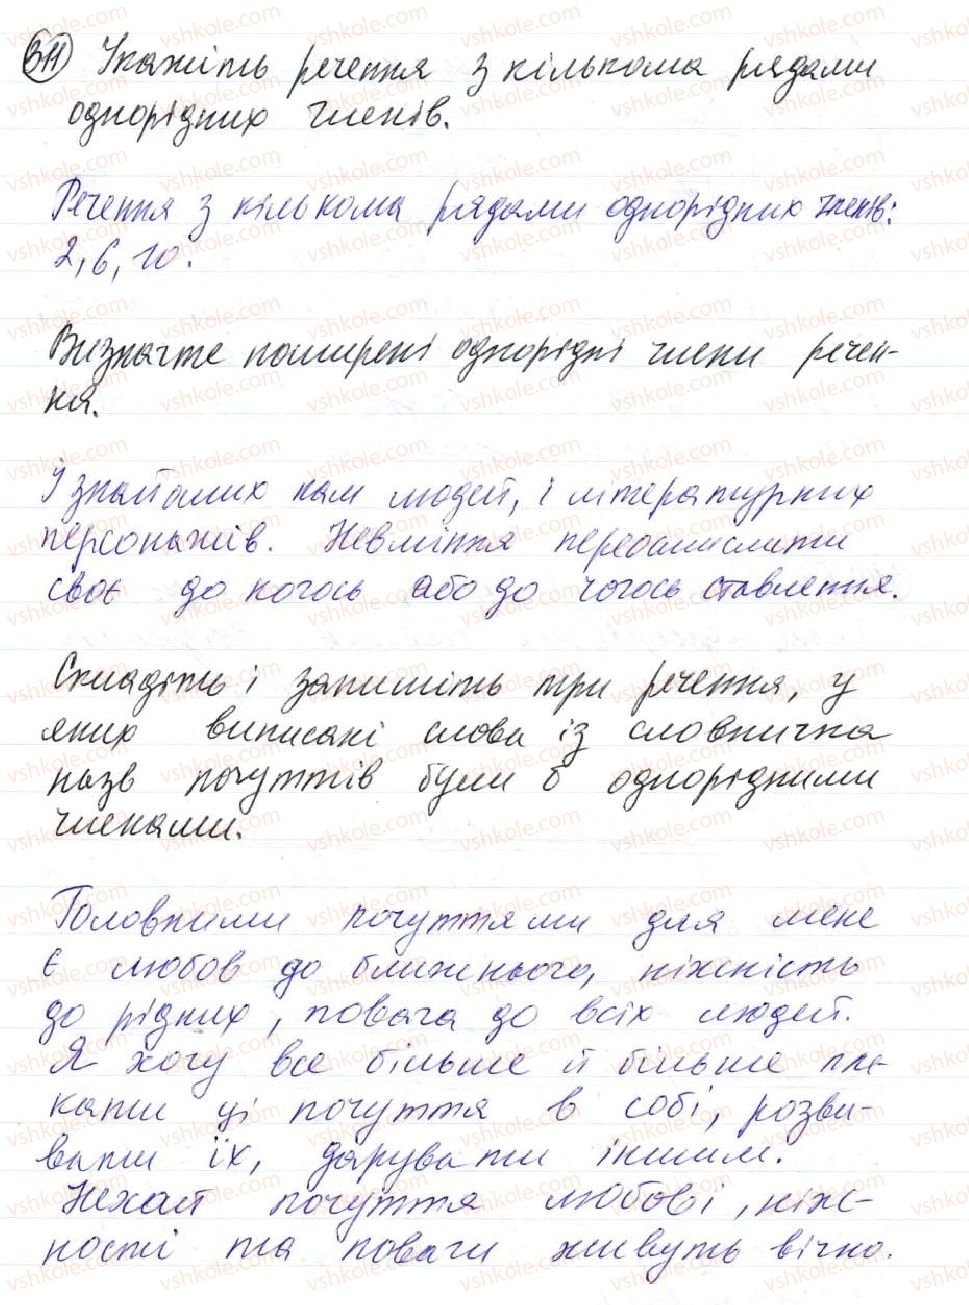 311 Укажіть речення з кількома рядами
однорідних членів.
Речення з кількома рядами однорідних членів:
2, 6, 10.
Визначте поширені однорідні члени речен-
ня.
І знайомих нам людей, і літературних
персонажів. Невміння переосмислити
своє до когось або до чогось ставлення.
Складіть і запишіть три речення, у
яких виписані слова із словничка
назв почуттів були б однорідними
членами.
Головними почуттями для мене
є любов до ближнього, ніжність
до рідних, повага до всіх людей.
Я хочу все більше й більше пле-
кати ці почуття в собі, розви-
вати їх, дарувати іншим.
Нехай почуття любові, ніж-
ності та поваги живуть вічно.